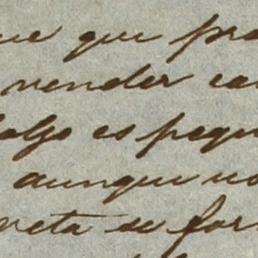 ue que pra
vender ca
algo es pequ
aunque no
reta se for